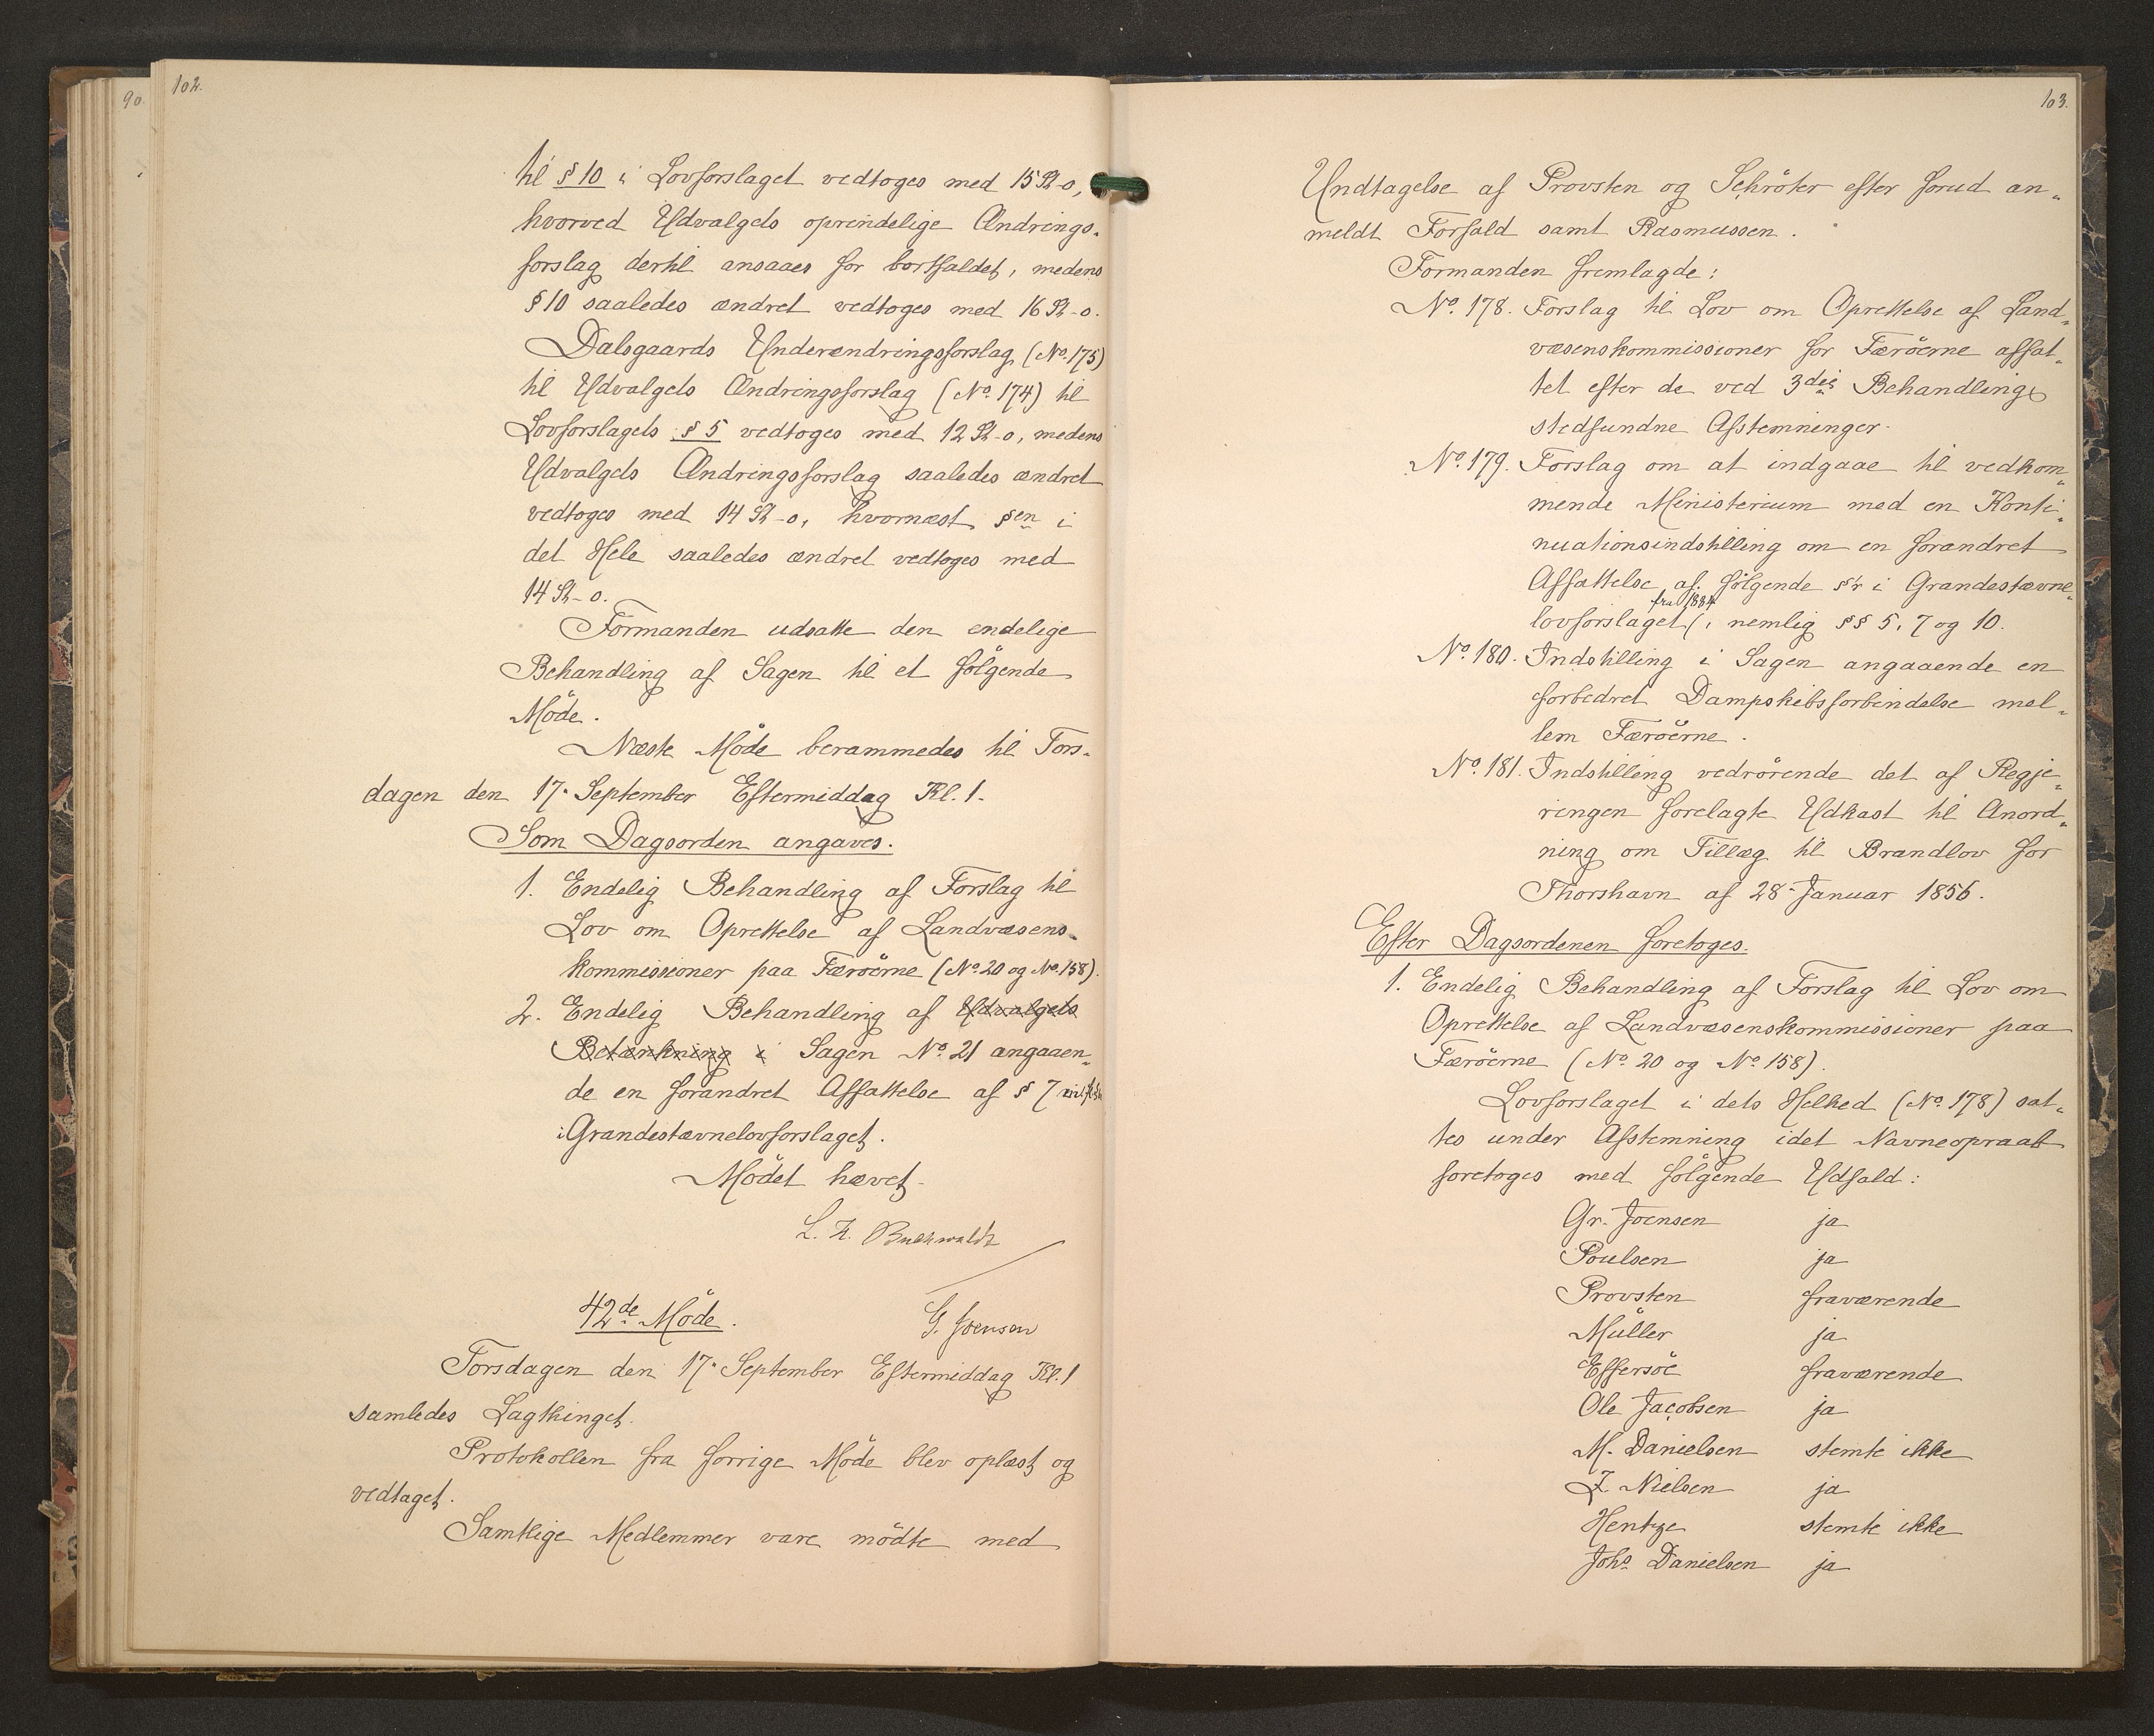 90.
102.
til § 10 i Lovforslaget vedtoges med 15 St-0,
hvorved Udvalgets oprindelige Ændrings-
forslag dertil ansaaes for bortfaldet, medens
§ 10 saaledes ændret vedtoges med 16 St-0.
Dalsgaards Underændringsforslag (No. 175)
til Udvalgets Ændringsforslag (No. 174) til
Lovforslagets § 5 vedtoges med 12 St-0, medens
Udvalgets Ændringsforslag saaledes ændret
vedtoges med 14 St-0, hvornæst §en i
det Hele saaledes ændret vedtoges med
14 St-0.
Formanden udsatte den endelige
Behandling af Sagen til et følgende
Møde.
Næste Møde berammedes til Tors-
dagen den 17. September Eftermiddag Kl. 1.
Som Dagsorden angaves.
1. Endelig Behandling af Forslag til
Lov om Oprettelse af Landvæsens-
kommissioner paa Færöerne (No. 20 og No. 158).
2. Endelig Behandling af Udvalgets
Betænkning i Sagen No. 21 angaaen-
de en forandret Affattelse af § 7
i Grandestævnelovforslaget.
Mödet hævet.
L. F. Buchwaldt
42de Möde.
G. Joensen
Torsdagen den 17. September Eftermiddag Kl. 1
samledes Lagthinget.
Protokollen fra forrige Möde blev oplæst og
vedtaget.
Samtlige Medlemmer vare mödte med
103.
Undtagelse af Provsten og Schröter efter forud an-
meldt Forfald samt Rasmussen.
Formanden fremlagde:
No. 178. Forslag til Lov om Oprettelse af Land-
væsenskommissioner for Færöerne affat-
tet efter de ved 3die Behandling
stedfundne Afstemninger.
No. 179. Forslag om at indgaae til vedkom-
mende Ministerium med en Konti-
nuationsindstilling om en forandret
Affattelse af følgende §'r i Grandestævne-
fra 1884
lovforslaget, nemlig §§ 5, 7 og 10.
No. 180. Indstilling i Sagen angaaende en
forbedret Dampskibsforbindelse mel-
lem Færöerne.
No. 181. Indstilling vedrörende det af Regje-
ringen forelagte Udkast til Anord-
ning om Tillæg til Brandlov for
Thorshavn af 28. Januar 1856.
Efter Dagsordenen foretoges.
1. Endelig Behandling af Forslag til Lov om
Oprettelse af Landvæsenskommissioner paa
Færöerne (No. 20 og No. 158).
Lovforslaget i dets Helhed (No. 178) sat-
tes under Afstemning idet Navneopraab
foretoges med fölgende Udfald:
Gr. Joensen ja
Poulsen ja
Provsten fraværende
Müller ja
Effersöe fraværende
Ole Jacobsen ja
M. Danielsen stemte ikke
Z. Nielsen ja
Hentze stemte ikke
Johs. Danielsen ja